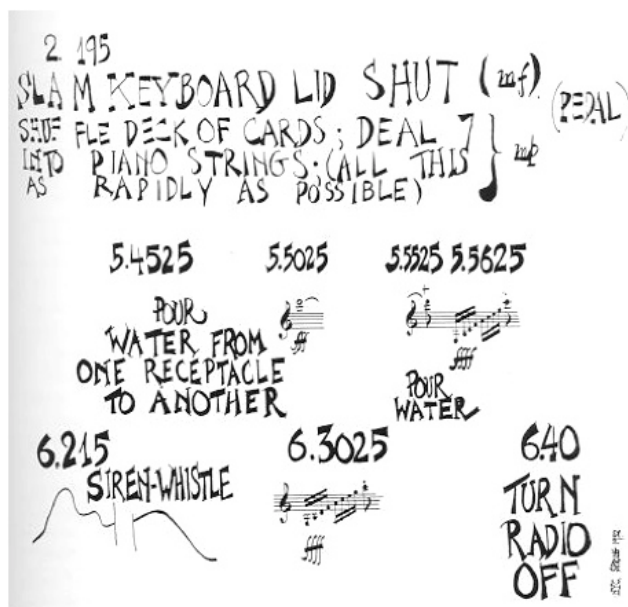 2. 195
SLAM KEYBOARD LID SHUT (mf).
(PEDAL)
SHUFFLE DECK OF CARDS; DEAL 7
INTO PIANO STRINGS; (ALL THIS
AS RAPIDLY AS POSSIBLE)
mp
5.4525 5.5025 5.5525 5.5625
POUR
WATER FROM
ONE RECEPTACLE
TO ANOTHER
fff
ffff
POUR
WATER
6.215 6.3025 6.40
SIREN-WHISTLE
ffff
TURN
RADIO
OFF